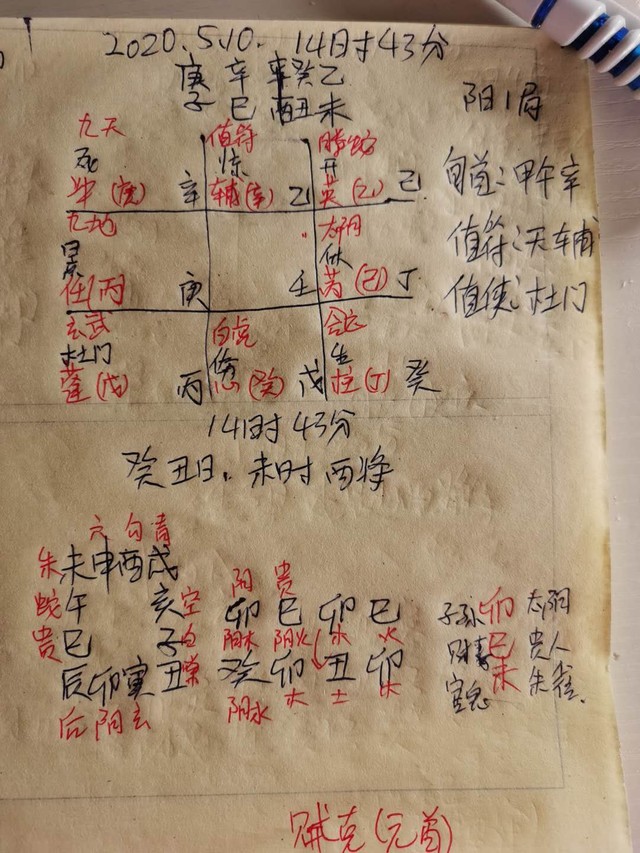 2020.5.10. 14时43分
庚 辛 癸 乙
子 巳 丑 未
阳1局
九天 值符 螣蛇
死 惊 开
冲(庚) 辛 辅(辛) 乙 英(乙) 己
旬首:甲午辛
九地 太阴
景 休
任(丙) 庚 壬 芮(己) 丁
值符:天辅
值使:杜门
玄武 白虎 六合
杜门 伤 生
蓬(戊) 丙 心(癸) 戊 柱(丁) 癸
14时43分
癸丑日. 未时 酉将
六 勾 青
朱 未 申 酉 戌
蛇 午 亥 空
贵 巳 子 白
辰 卯 寅 丑 常
后 阴 玄
阴 贵
卯 巳 卯 巳
阴木 阴火 木 火
癸 卯 丑 卯
阴水 木 土 木
子孙 卯 太阴
财 巳 贵人
官鬼 未 朱雀.
贼克(元首)